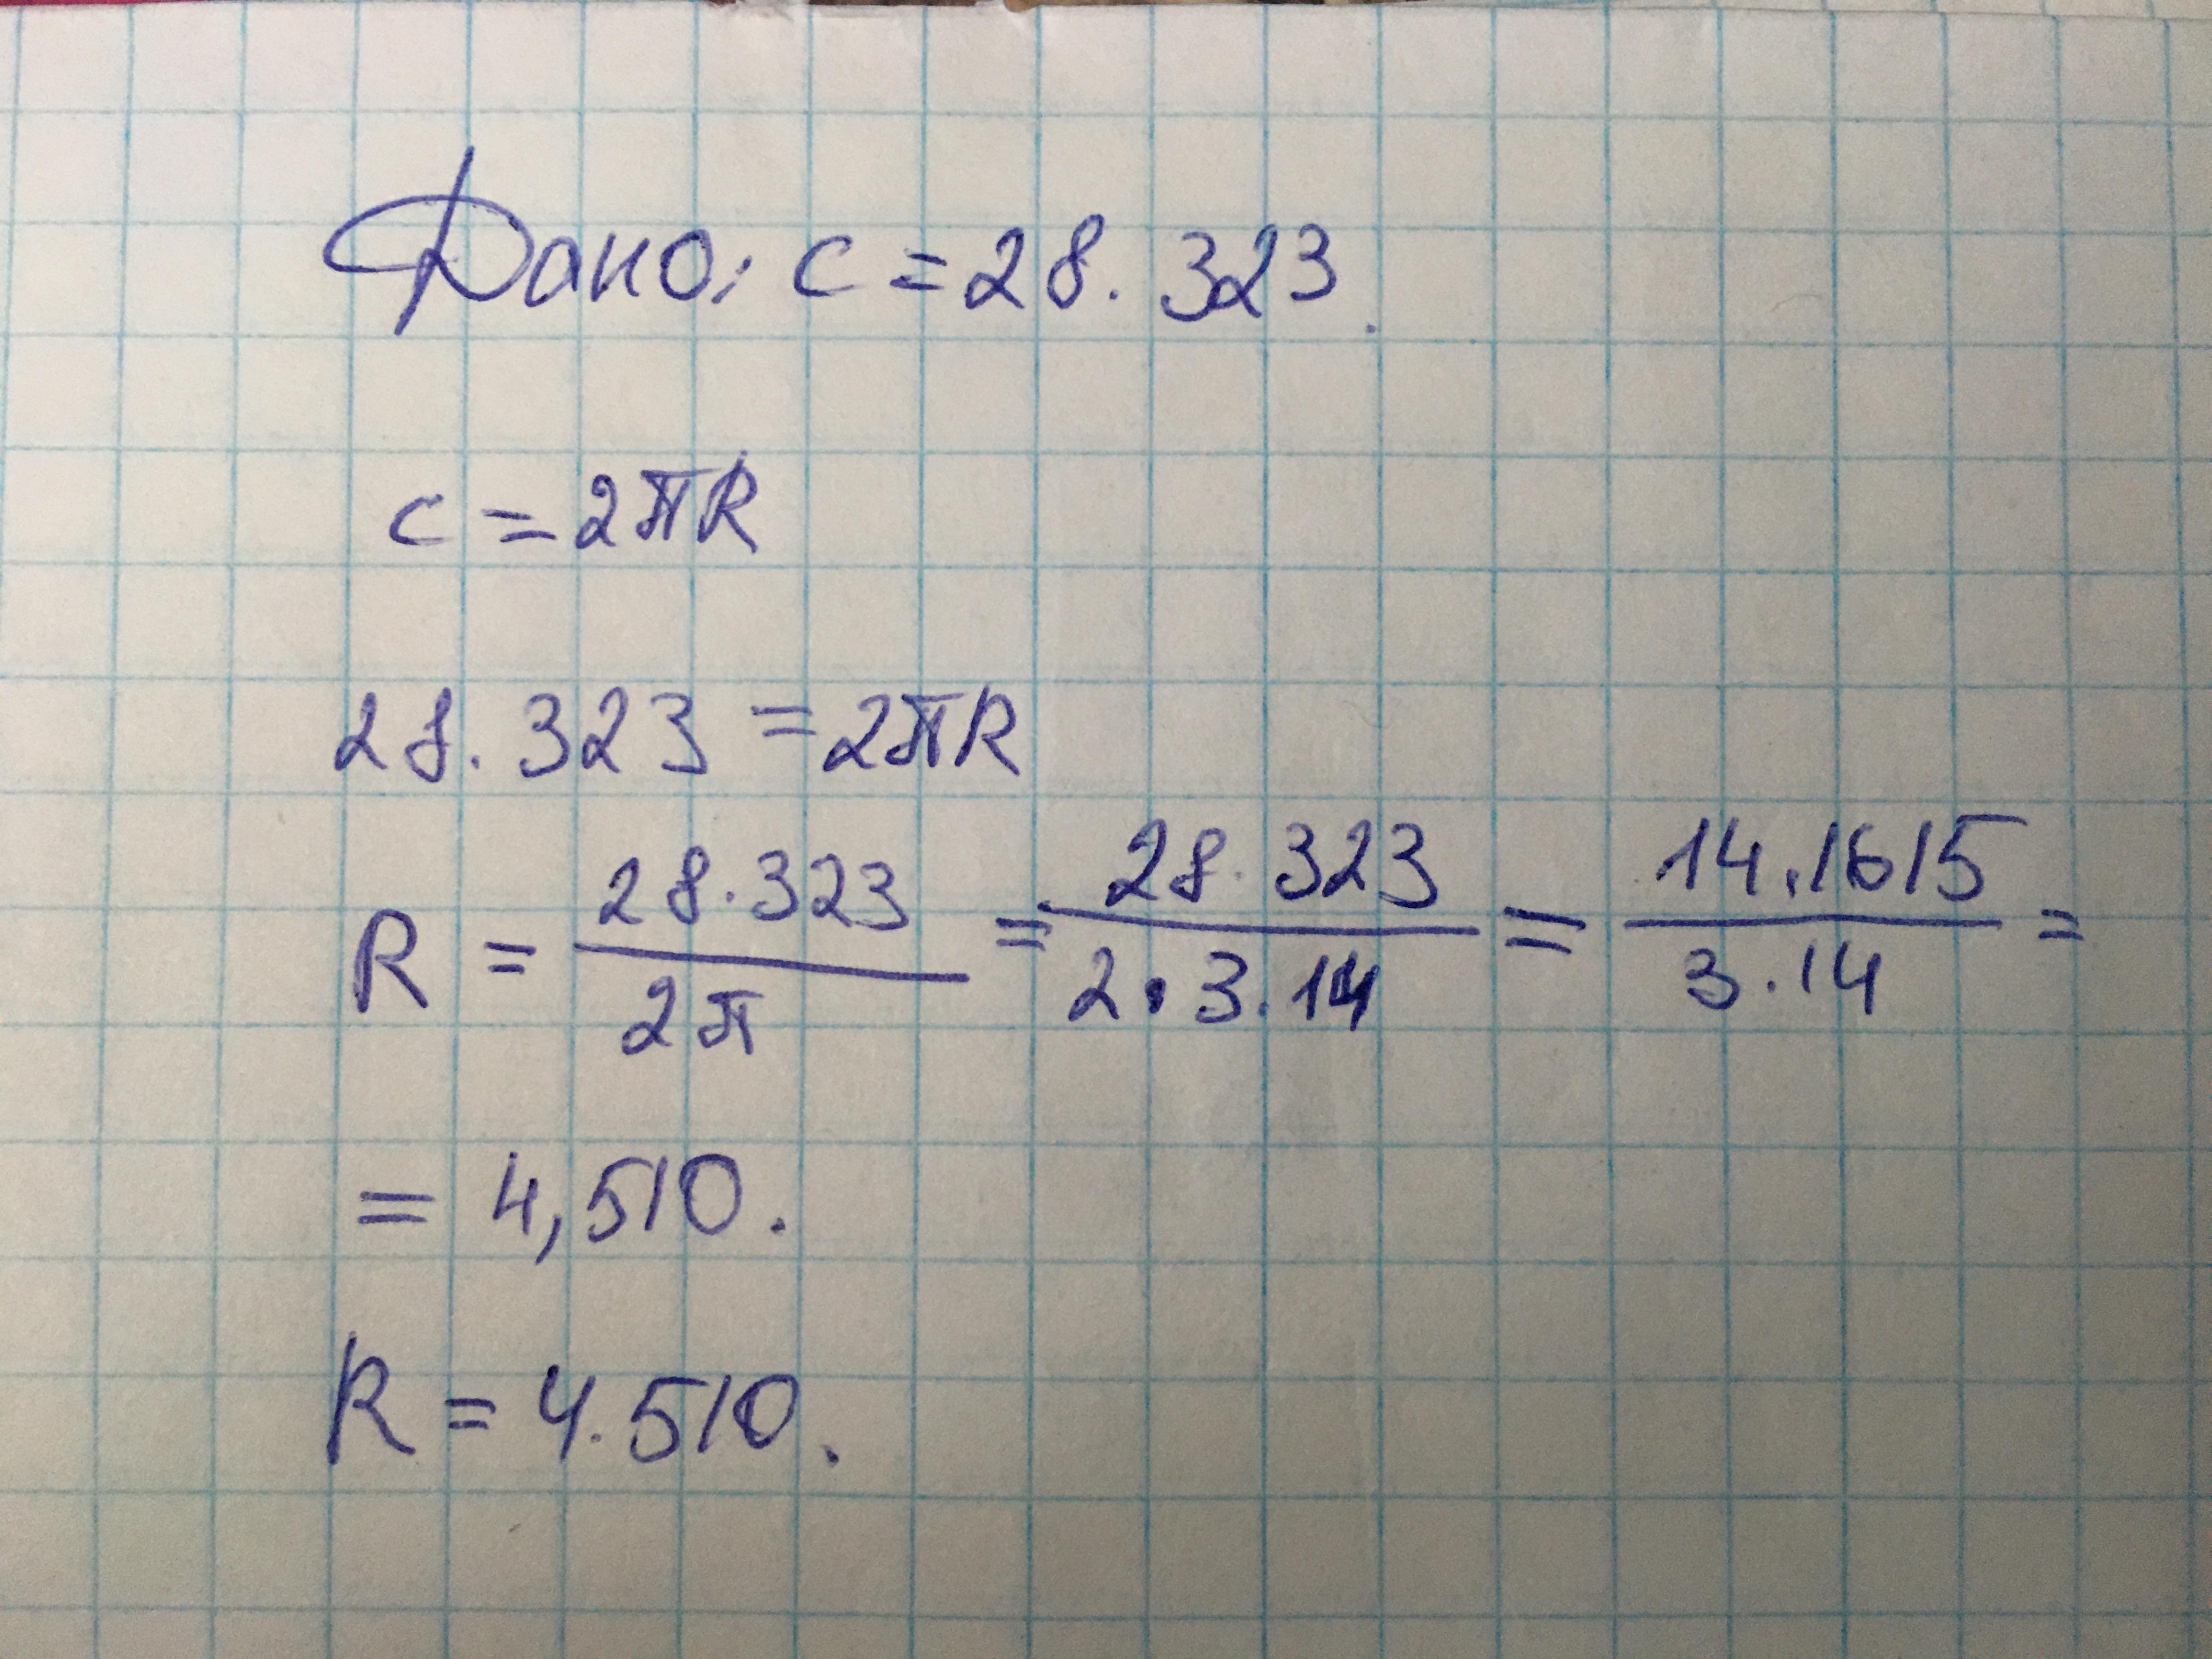 Дано: c = 28.323.
c = 2πR
28.323 = 2πR
R = 28.323 / 2π = 28.323 / 2·3.14 = 14.1615 / 3.14 =
= 4,510.
R = 4.510.